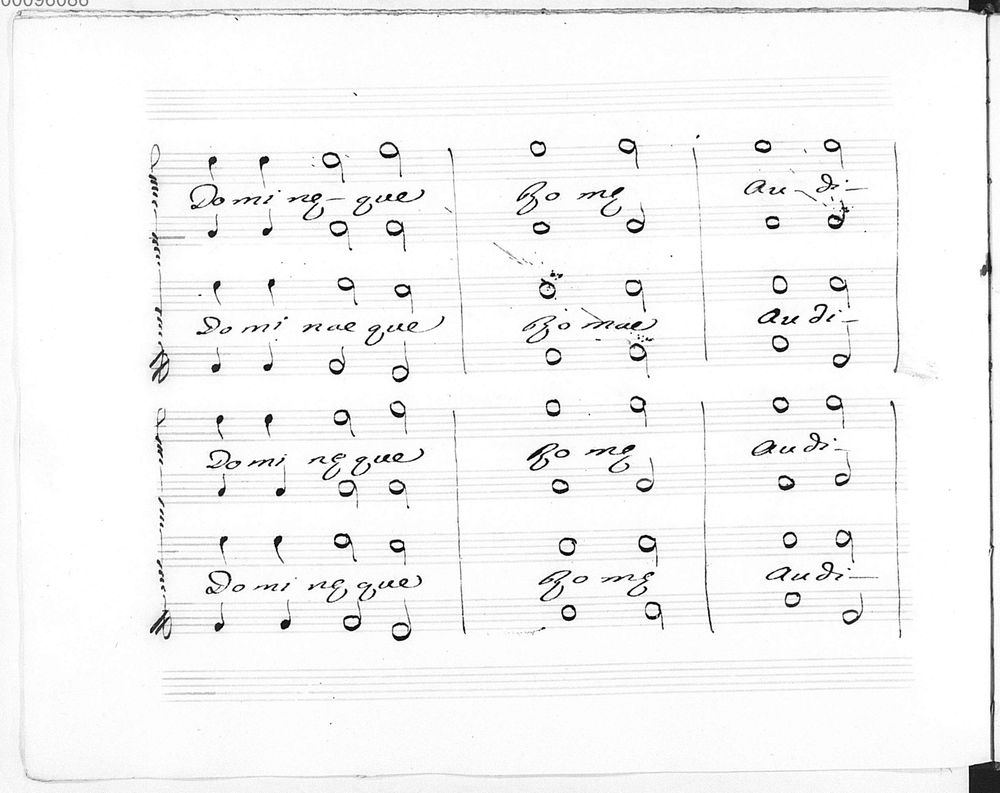 Do mi nę - que Ro mę Au - di -
Do mi nae que Ro mae Au di -
Do mi nę que Ro mę Au di -
Do mi nę que Ro mę Au di -